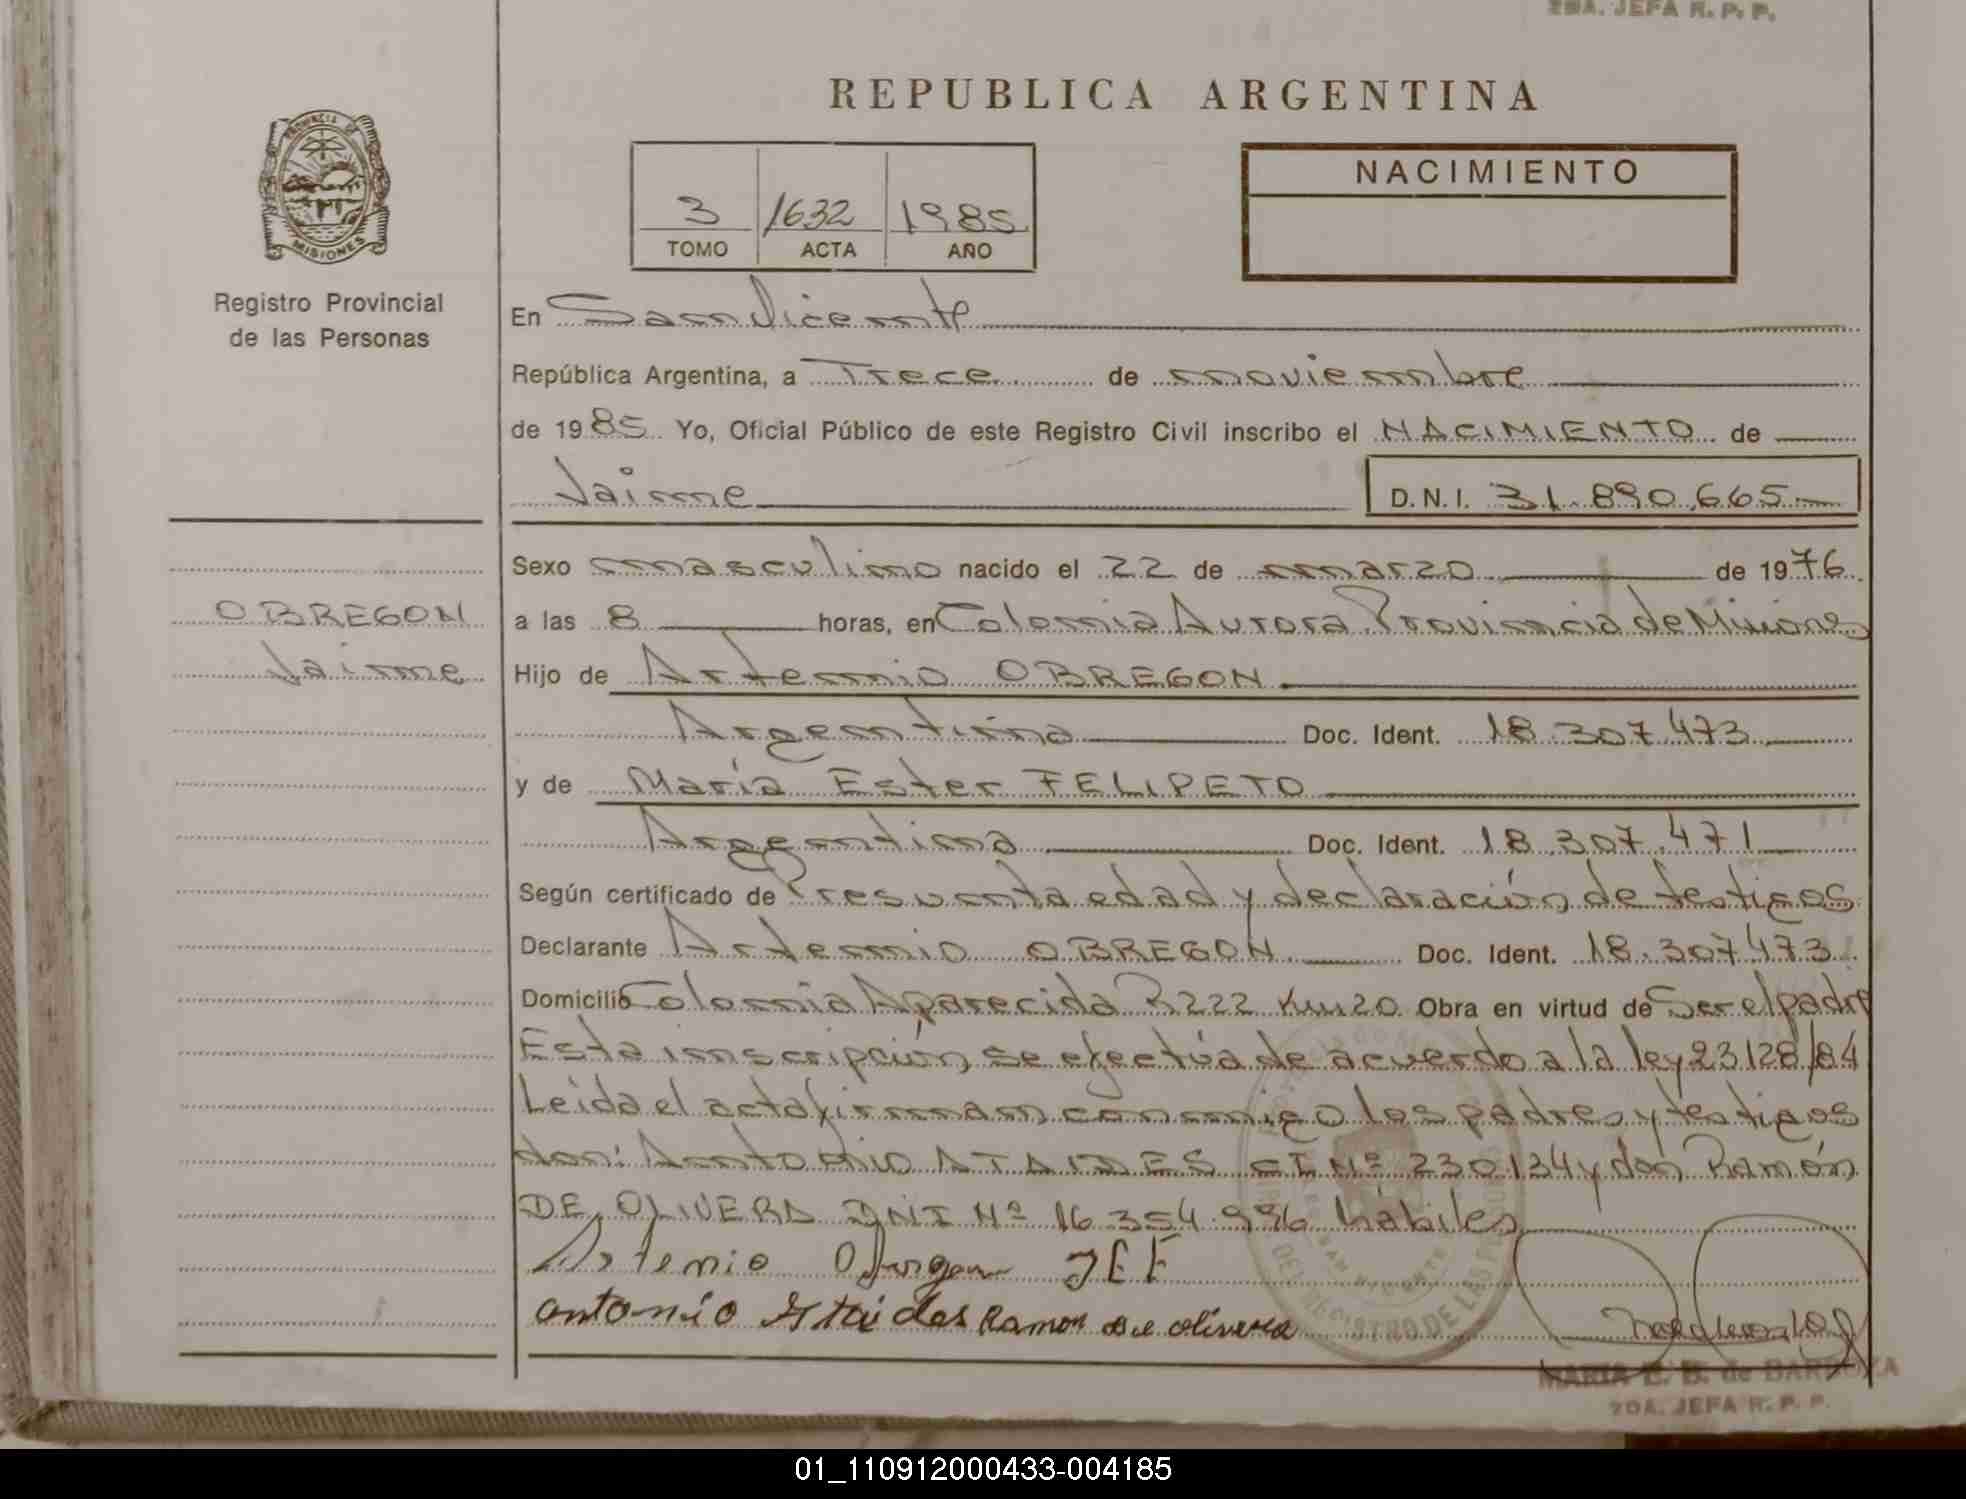 2DA. JEFA R. P. P.
REPUBLICA ARGENTINA
PROVINCIA DE
MISIONES
Registro Provincial
de las Personas
3 1632 1985
TOMO ACTA AÑO
NACIMIENTO
En San Vicente
República Argentina, a Trece de noviembre
de 1985 Yo, Oficial Público de este Registro Civil inscribo el NACIMIENTO de
Jaime D.N.I. 31.890.665
Sexo masculino nacido el 22 de marzo de 1976
OBREGON
Jaime
a las 8 horas, en Colonia Aurora Provincia de Misiones
Hijo de Artemio OBREGON
Argentina Doc. Ident. 18.307.473
y de María Ester FELIPETO
Argentina Doc. Ident. 18.307.471
Según certificado de Presunta edad y declaración de testigos
Declarante Artemio OBREGON Doc. Ident. 18.307.473
Domicilio Colonia Aparecida R222 Km20 Obra en virtud de Ser el padre
Esta inscripción se efectúa de acuerdo a la ley 23128/84
Leida el acta firman conmigo los padres y testigos
don: Antonio ATAIDES CI Nº 230134 y don Ramón
DE OLIVERA DNI Nº 16.354.996 hábiles
Artemio Obregon
antonio Ataides Ramon De olivera
MARIA E. B. de BARBOZA
2DA. JEFA R. P. P.
01_110912000433-004185